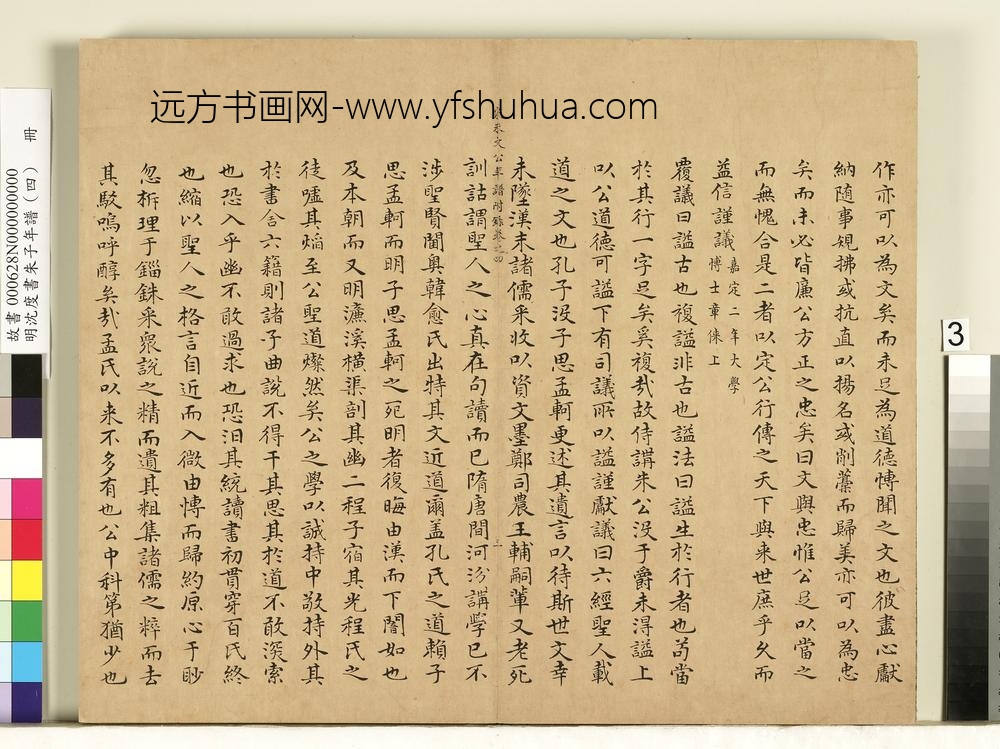 远方书画网-www.yfshuhua.com
作亦可以為文矣而未足為道德博聞之文也彼盡心獻
納隨事規拂或抗直以揚名或削藁而歸美亦可以為忠
矣而未必皆廉公方正之忠矣曰文與忠惟公足以當之
而無愧合是二者以定公行傳之天下與来世庶乎久而
益信謹議嘉定二年大學
博士章徠上
覆議曰謚古也複謚非古也謚法曰謚生於行者也苟當
於其行一字足矣奚複㢤故侍講朱公沒于爵未得謚上
以公道德可謚下有司議所以謚謹獻議曰六經聖人載
道之文也孔子沒子思孟軻更述其遺言以待斯世文幸
未墜漢末諸儒采收以資文墨鄭司農王輔嗣輩又老死
朱文公年譜附錄卷之四
訓詁謂聖人之心真在句讀而已隋唐間河汾講學已不
涉聖賢閫奥韓愈氏出特其文近道爾盖孔氏之道賴子
思孟軻而明子思孟軻之死明者復晦由漢而下誾如也
及本朝而又明濂溪橫渠剖其幽二程子宿其光程氏之
徒噓其焰至公聖道燦然矣公之學以誠持中敬持外其
於書舍六籍則諸子曲說不得干其思其於道不敢深索
也恐入乎幽不敢過求也恐汨其統讀書初貫穿百氏終
也縮以聖人之格言自近而入微由博而歸約原心于眇
忽析理于錙銖采衆說之精而遺其粗集諸儒之粹而去
其駁嗚呼醇矣㢤孟氏以来不多有也公中科第猶少也
3
故書 000628N000000000
明沈度書朱子年譜（四） 冊